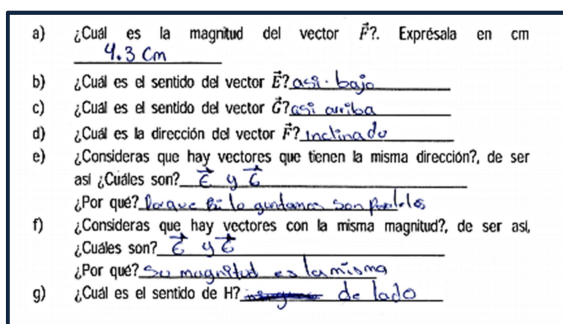 a) ¿Cuál es la magnitud del vector F⃗?. Exprésala en cm
4.3 cm
b) ¿Cuál es el sentido del vector E⃗? así bajo
c) ¿Cuál es el sentido del vector G⃗? así arriba
d) ¿Cuál es la dirección del vector F⃗? inclinado
e) ¿Consideras que hay vectores que tienen la misma dirección?, de ser
así ¿Cuáles son? C⃗ y G⃗
¿Por qué? Porque si lo son
f) ¿Consideras que hay vectores con la misma magnitud?, de ser así,
¿Cuáles son? C⃗ y G⃗
¿Por qué? Su magnitud es la misma
g) ¿Cuál es el sentido de H? de lado